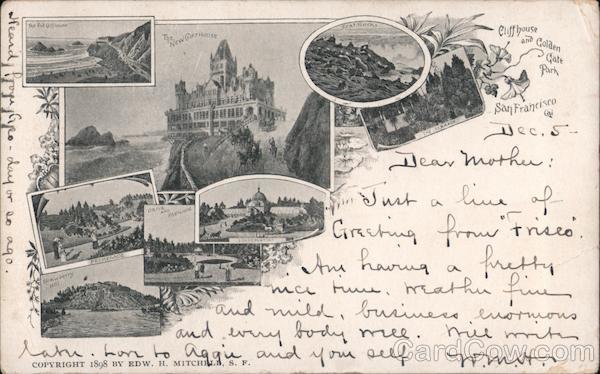 The Old Cliffhouse
The New Cliffhouse
Seal Rocks
Cliffhouse
and Golden
Gate
Park
San Francisco
Cal
Dec. 5-
Dear Mother:
Just a line of
Greeting from "Frisco".
Am having a pretty
nice time, weather fine
and mild, business enormous
and every body well. Will write
later. Love to Aggie and you self
W.M.H.
Conservatory
Strawberry
Hill
Nearly from Geo - day or so ago.
COPYRIGHT 1898 BY EDW. H. MITCHELL, S. F.
CardCow.com